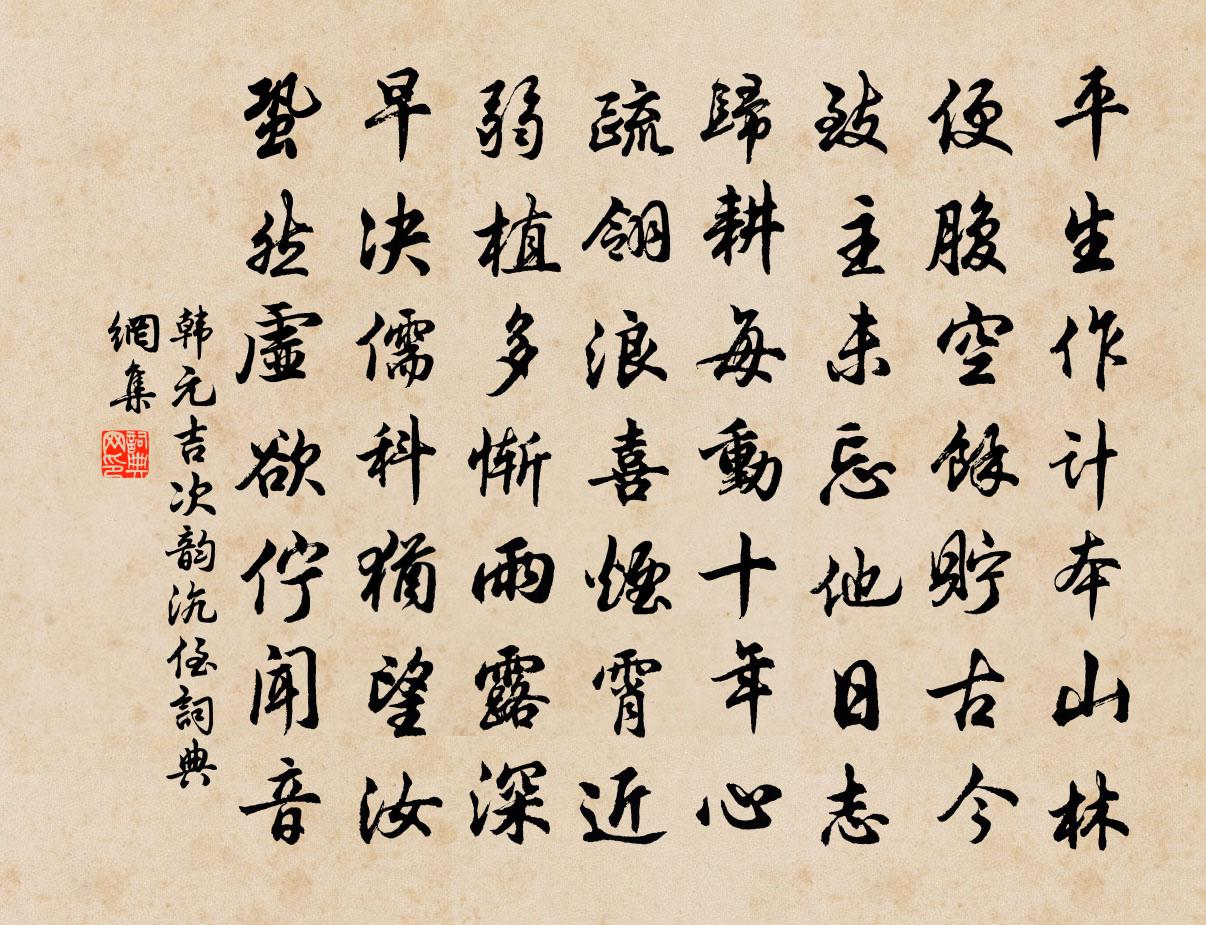 平生作计本山林
便腹空餘貯古今
致主未忘他日志
歸耕每動十年心
疏翎浪喜煙霄近
弱植多慚雨露深
早決儒科猶望汝
蛩然虛欲佇聞音
韩元吉次韵沆侄詞典
網集
詞典网印